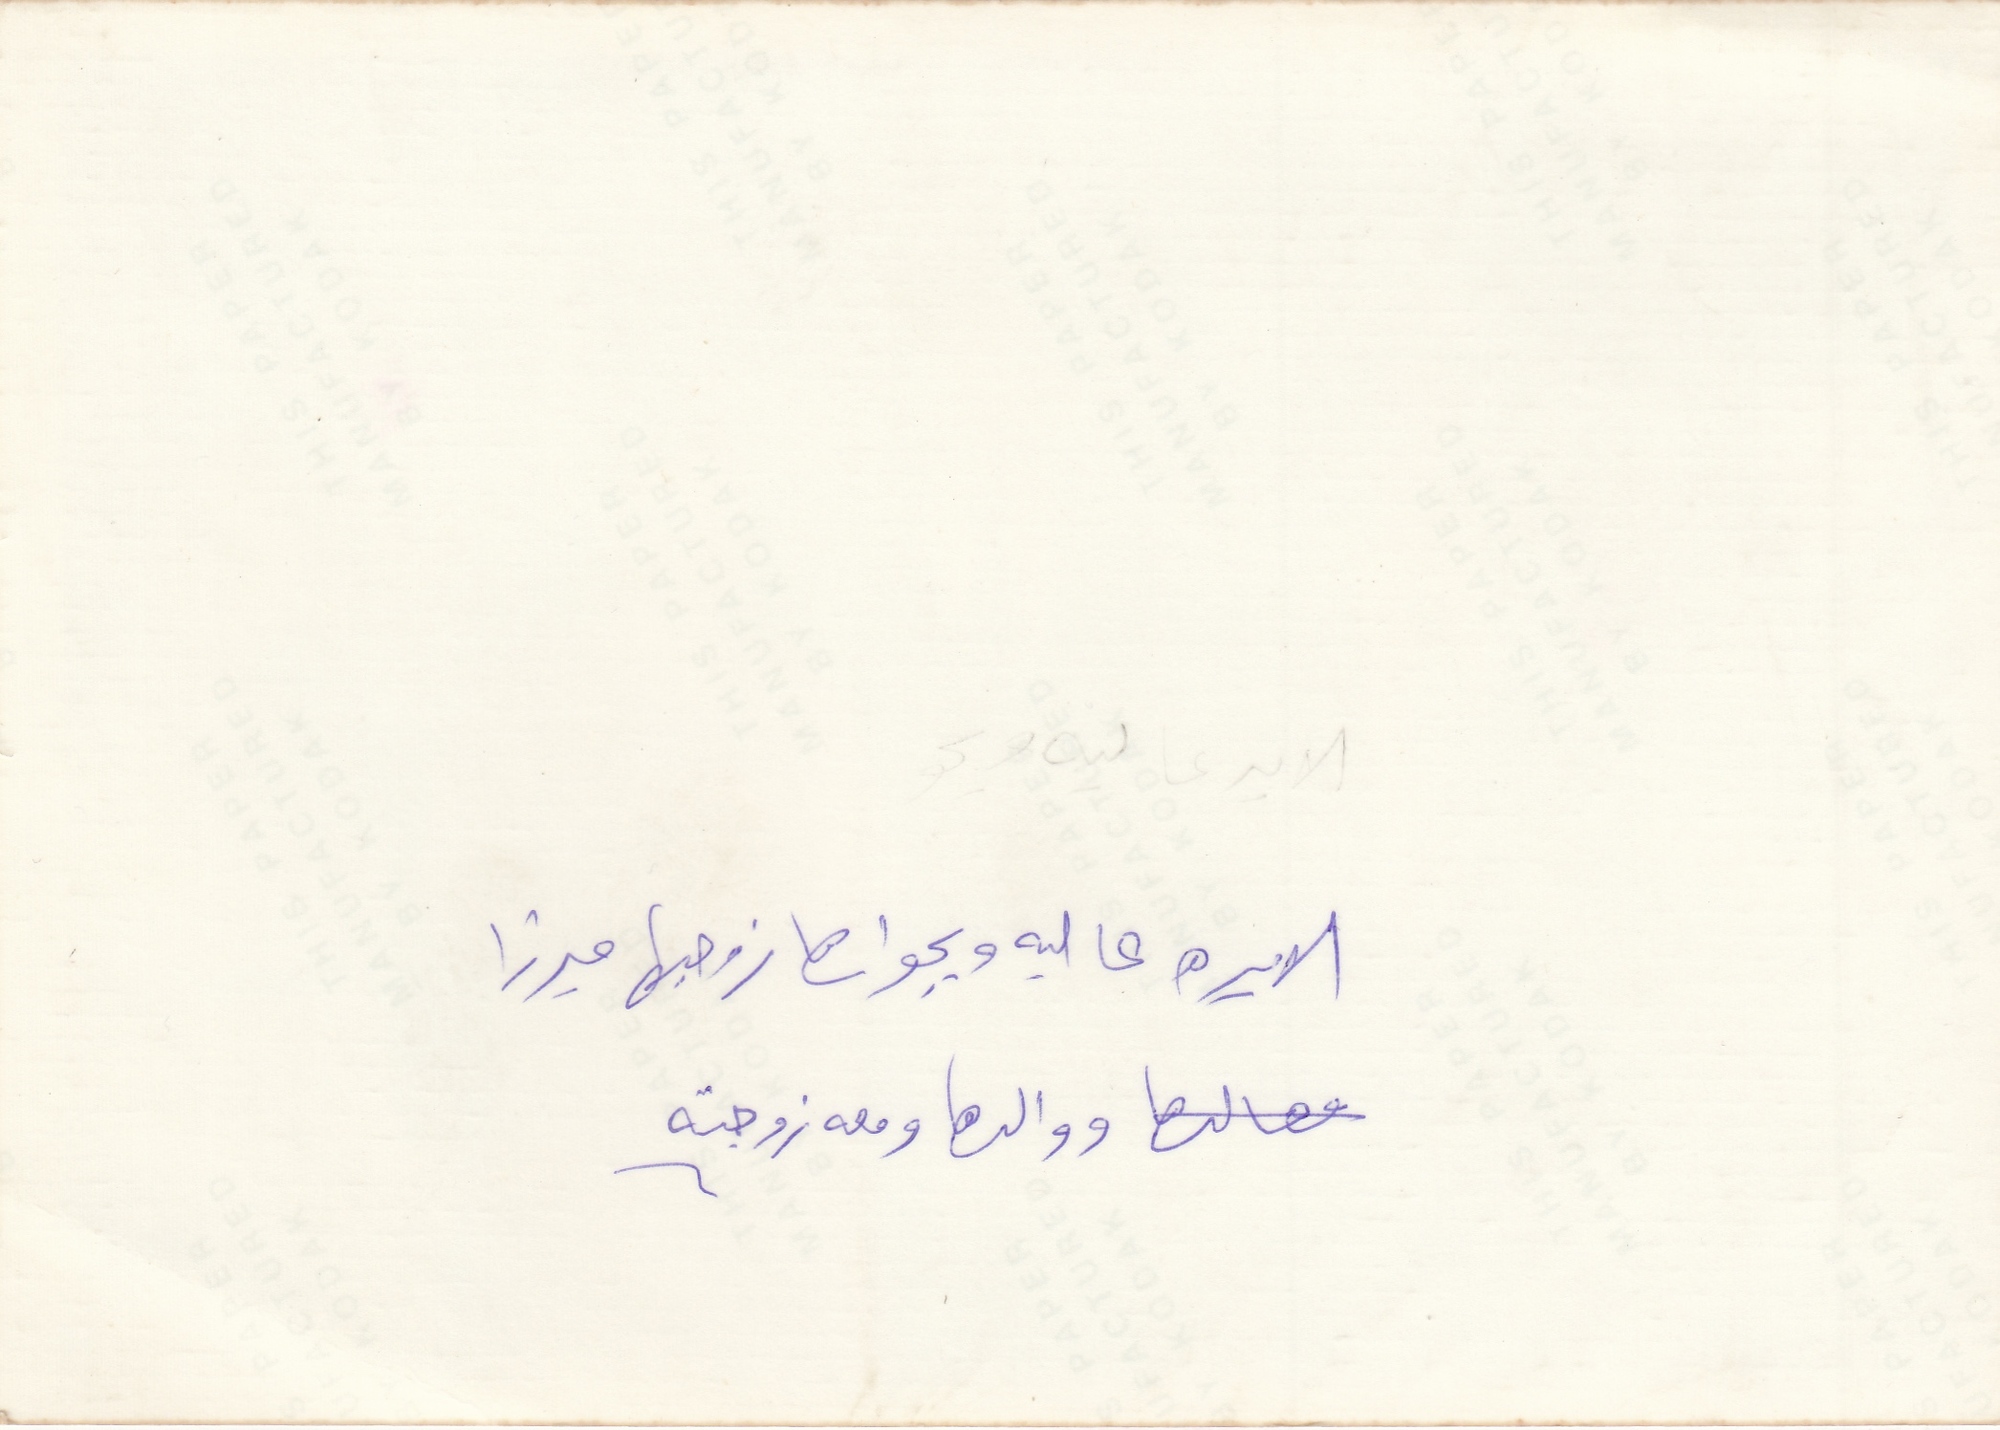 الامير عاليه ويجو
الاميره عاليه وبجوارها زوجها ميرزا
ووالدها ومعه زوجته
THIS PAPER
MANUFACTURED
BY KODAK